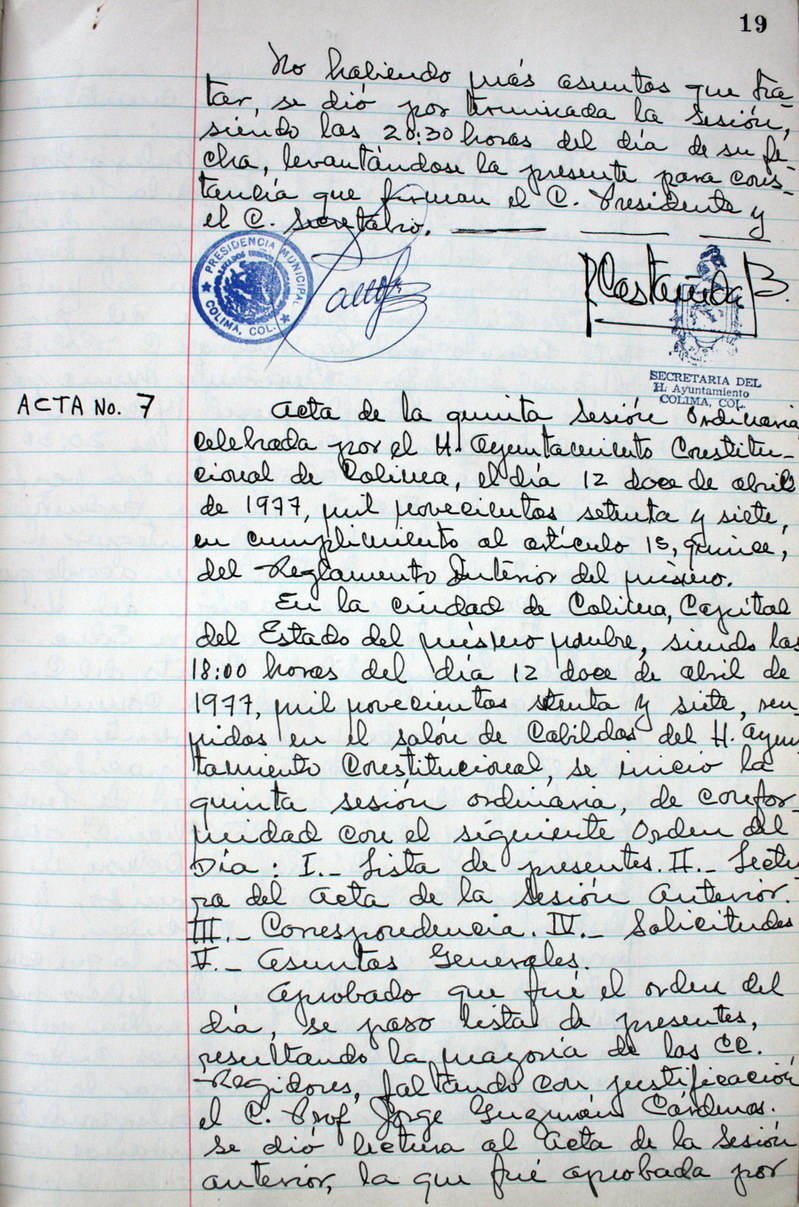 19
No habiendo más asuntos que tra-
tar, se dió por terminada la sesión,
siendo las 20:30 horas del día de su fe-
cha, levantándose la presente para cons-
tancia que firman el C. Presidente y
el C. Secretario.
PRESIDENCIA MUNICIPAL
COLIMA, COL.
Castañeda B.
SECRETARIA DEL
H. Ayuntamiento
COLIMA, COL.
ACTA No. 7
Acta de la quinta sesión ordinaria
celebrada por el H. Ayuntamiento Constitu-
cional de Colima, el día 12 doce de abril
de 1977, mil novecientos setenta y siete,
en cumplimiento al artículo 15, quince,
del Reglamento Interior del mismo.
En la ciudad de Colima, Capital
del Estado del mismo nombre, siendo las
18:00 horas del día 12 doce de abril de
1977, mil novecientos setenta y siete, reu-
nidos en el salón de Cabildos del H. Ayun
tamiento Constitucional, se inicio la
quinta sesión ordinaria, de confor-
midad con el siguiente Orden del
Día: I.- Lista de presentes. II.- Lectu
ra del acta de la sesión anterior.
III.- Correspondencia. IV.- Solicitudes
V.- Asuntos Generales.
Aprobado que fué el orden del
día, se paso lista de presentes,
resultando la mayoría de los CC.
Regidores, faltando con justificación
el C. Prof. Jorge Guzmán Cárdenas.
Se dió lectura al acta de la sesión
anterior, la que fué aprobada por